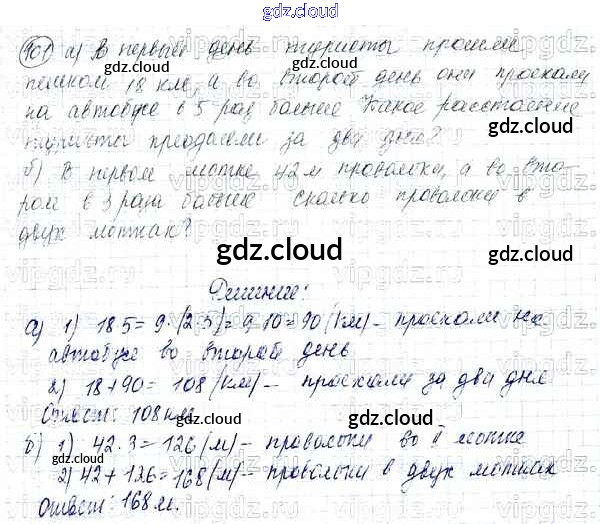 gdz.cloud
901 а) В первый день туристы прошли
пешком 18 км, а во второй день они проехали
на автобусе в 5 раз больше Какое расстояние
туристы преодолели за два дня?
б) В первом мотке 42 м проволоки, а во вто-
ром в 3 раза больше Сколько проволоки в
двух мотках?
gdz.cloud
Решение:
а) 1) 18·5= 9·(2·5)= 9·10=90 (км) – проехали на
автобусе во второй день
2) 18+90= 108 (км) – проехали за два дня
Ответ: 108 км
б) 1) 42·3=126 (м) – проволоки во II мотке
2) 42+126=168 (м) – проволоки в двух мотках
Ответ: 168 м.